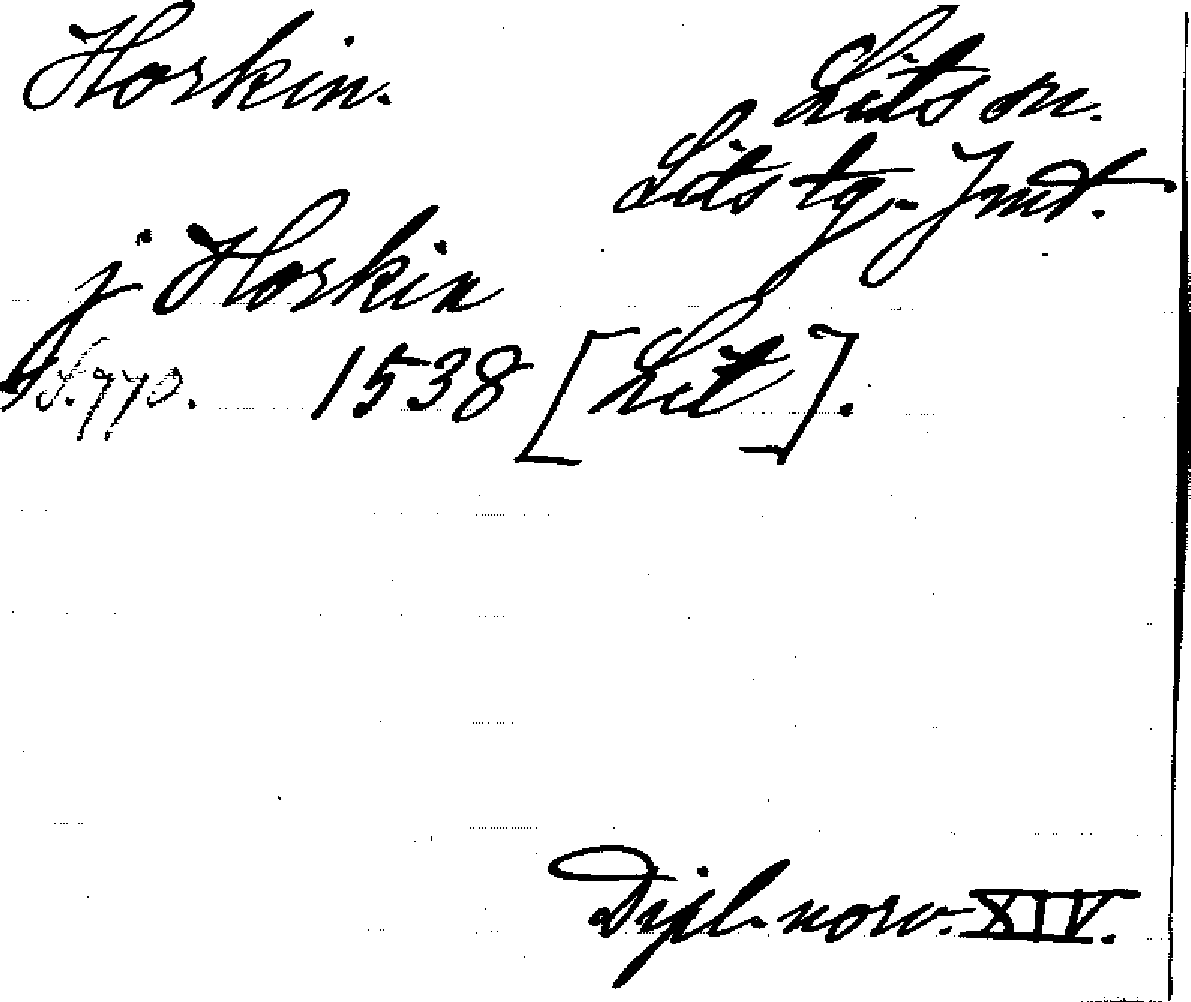 Horkin.
Lits sn.
Lits tg. Jmt.
j Horkin
S. 770. 1538 [Lit].
Dipl. norv. XIV.